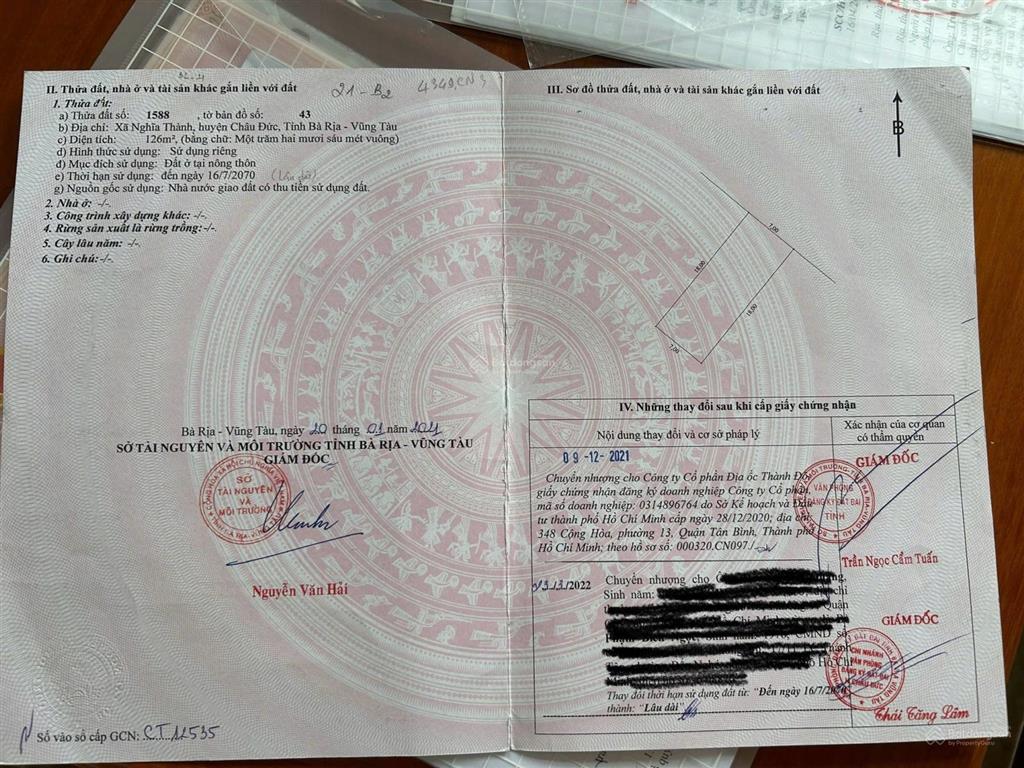 II. Thửa đất, nhà ở và tài sản khác gắn liền với đất
21-B2
4349.CN3
1. Thửa đất:
a) Thửa đất số: 1588 , tờ bản đồ số: 43
b) Địa chỉ: Xã Nghĩa Thành, huyện Châu Đức, Tỉnh Bà Rịa - Vũng Tàu
c) Diện tích: 126m², (bằng chữ: Một trăm hai mươi sáu mét vuông)
d) Hình thức sử dụng: Sử dụng riêng
đ) Mục đích sử dụng: Đất ở tại nông thôn
e) Thời hạn sử dụng: đến ngày 16/7/2070
g) Nguồn gốc sử dụng: Nhà nước giao đất có thu tiền sử dụng đất.
2. Nhà ở: -/-
3. Công trình xây dựng khác: -/-
4. Rừng sản xuất là rừng trồng:-/-
5. Cây lâu năm: -/-
6. Ghi chú:-/-
Bà Rịa - Vũng Tàu, ngày 20 tháng 01 năm 2021
SỞ TÀI NGUYÊN VÀ MÔI TRƯỜNG TỈNH BÀ RỊA - VŨNG TÀU
GIÁM ĐỐC
SỞ
TÀI NGUYÊN
VÀ
MÔI TRƯỜNG
Nguyễn Văn Hải
Số vào sổ cấp GCN: CT12535
III. Sơ đồ thửa đất, nhà ở và tài sản khác gắn liền với đất
B
7,00
18,00
18,00
7,00
IV. Những thay đổi sau khi cấp giấy chứng nhận
Nội dung thay đổi và cơ sở pháp lý
Xác nhận của cơ quan
có thẩm quyền
09-12-2021
Chuyển nhượng cho Công ty Cổ phần Địa ốc Thành Đô
giấy chứng nhận đăng ký doanh nghiệp Công ty Cổ phần,
mã số doanh nghiệp: 0314896764 do Sở Kế hoạch và Đầu
tư thành phố Hồ Chí Minh cấp ngày 28/12/2020; địa chỉ
348 Cộng Hòa, phường 13, Quận Tân Bình, Thành phố
Hồ Chí Minh; theo hồ sơ số: 000320.CN097./
GIÁM ĐỐC
VĂN PHÒNG
ĐĂNG KÝ ĐẤT ĐAI
TỈNH
Trần Ngọc Cẩm Tuấn
/2022 Chuyển nhượng cho
Sinh năm:
Quận
CMND số
Hồ Chí
Thay đổi thời hạn sử dụng đất từ: "Đến ngày 16/7/2070
thành: "Lâu dài"
GIÁM ĐỐC
CHI NHÁNH
VĂN PHÒNG
ĐĂNG KÝ ĐẤT ĐAI
CHÂU ĐỨC
Thái Tăng Lâm
by PropertyGuru